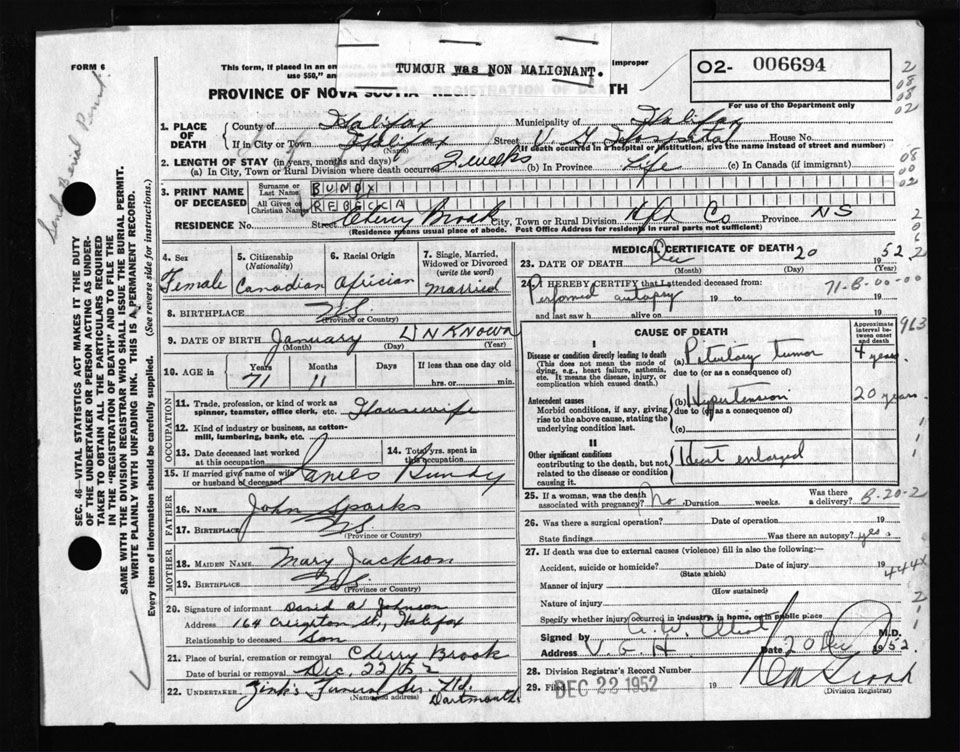 FORM 6
This form, if placed in an en
improper
use $50,” an
TUMOUR was NON MALIGNANT.
02- 006694
For use of the Department only
PROVINCE OF NOVA SCOTIA REGISTRATION OF DEATH
Sent Burial Permit
1. PLACE OF DEATH
County of Halifax Municipality of Halifax
If in City or Town Halifax Street V. G. Hospital House No.
(Name) (If death occurred in a hospital or institution, give the name instead of street and number)
2. LENGTH OF STAY (in years, months and days)
(a) In City, Town or Rural Division where death occurred 2 weeks (b) In Province Life (c) In Canada (if immigrant)
3. PRINT NAME OF DECEASED
Surname or Last Name BUNDY
All Given or Christian Names REBECKA
RESIDENCE No. Street Cherry Brook City, Town or Rural Division Hfx Co Province NS
(Residence means usual place of abode. Post Office Address for residents in rural parts not sufficient)
SEC. 46—VITAL STATISTICS ACT MAKES IT THE DUTY
OF THE UNDERTAKER OR PERSON ACTING AS UNDER-
TAKER TO OBTAIN ALL THE PARTICULARS REQUIRED
IN THE “REGISTRATION OF DEATH” AND TO FILE THE
SAME WITH THE DIVISION REGISTRAR WHO SHALL ISSUE THE BURIAL PERMIT.
WRITE PLAINLY WITH UNFADING INK. THIS IS A PERMANENT RECORD.
Every item of information should be carefully supplied. (See reverse side for instructions.)
4. Sex
Female
5. Citizenship
(Nationality)
Canadian
6. Racial Origin
African
7. Single, Married,
Widowed or Divorced
(write the word)
Married
8. BIRTHPLACE NS
(Province or Country)
9. DATE OF BIRTH January UNKNOWN
(Month) (Day) (Year)
10. AGE in
Years Months Days If less than one day old
71 11 hrs. or min.
OCCUPATION
11. Trade, profession, or kind of work as
spinner, teamster, office clerk, etc. Housewife
12. Kind of industry or business, as cotton-
mill, lumbering, bank, etc.
13. Date deceased last worked
at this occupation
14. Total yrs. spent in
this occupation
15. If married give name of wife
or husband of deceased James Bundy
FATHER
16. NAME John Sparks
17. BIRTHPLACE NS
(Province or Country)
MOTHER
18. MAIDEN NAME Mary Jackson
19. BIRTHPLACE NS
(Province or Country)
20. Signature of informant David A Johnson
Address 164 Creighton St., Halifax
Relationship to deceased Son
21. Place of burial, cremation or removal Cherry Brook
Date of burial or removal Dec. 22/52
22. UNDERTAKER Zink's Funeral Ser. Ltd
(Name and address) Dartmouth
MEDICAL CERTIFICATE OF DEATH
23. DATE OF DEATH Dec 20 1952
(Month) (Day) (Year)
24. I HEREBY CERTIFY that I attended deceased from:
71-8-00-00
Performed autopsy 19 to 19
and last saw h alive on 19
CAUSE OF DEATH
Approximate
interval be-
tween onset
and death
963
I
Disease or condition directly leading to death
(This does not mean the mode of
dying, e.g., heart failure, asthenia,
etc. It means the disease, injury, or
complication which caused death.)
(a) Pitutary tumor 4 years.
due to (or as a consequence of)
Antecedent causes
Morbid conditions, if any, giving
rise to the above cause, stating the
underlying condition last.
(b) Hypertension 20 years.
due to (or as a consequence of)
(c)
II
Other significant conditions
contributing to the death, but not
related to the disease or condition
causing it.
Heart enlarged
25. If a woman, was the death
associated with pregnancy? No Duration weeks. Was there
a delivery? 8-20-2
26. Was there a surgical operation? Date of operation 19
State findings Was there an autopsy? yes.
27. If death was due to external causes (violence) fill in also the following:—
Accident, suicide or homicide? Date of injury 19
(State which)
444X
Manner of injury
(How sustained)
Nature of injury
Specify whether injury occurred in industry, in home, or in public place
Signed by A. W. Elliot M.D.
Address V. G. H. Date 20 Dec 1952.
28. Division Registrar's Record Number
29. Filed DEC 22 1952 19
(Division Registrar)